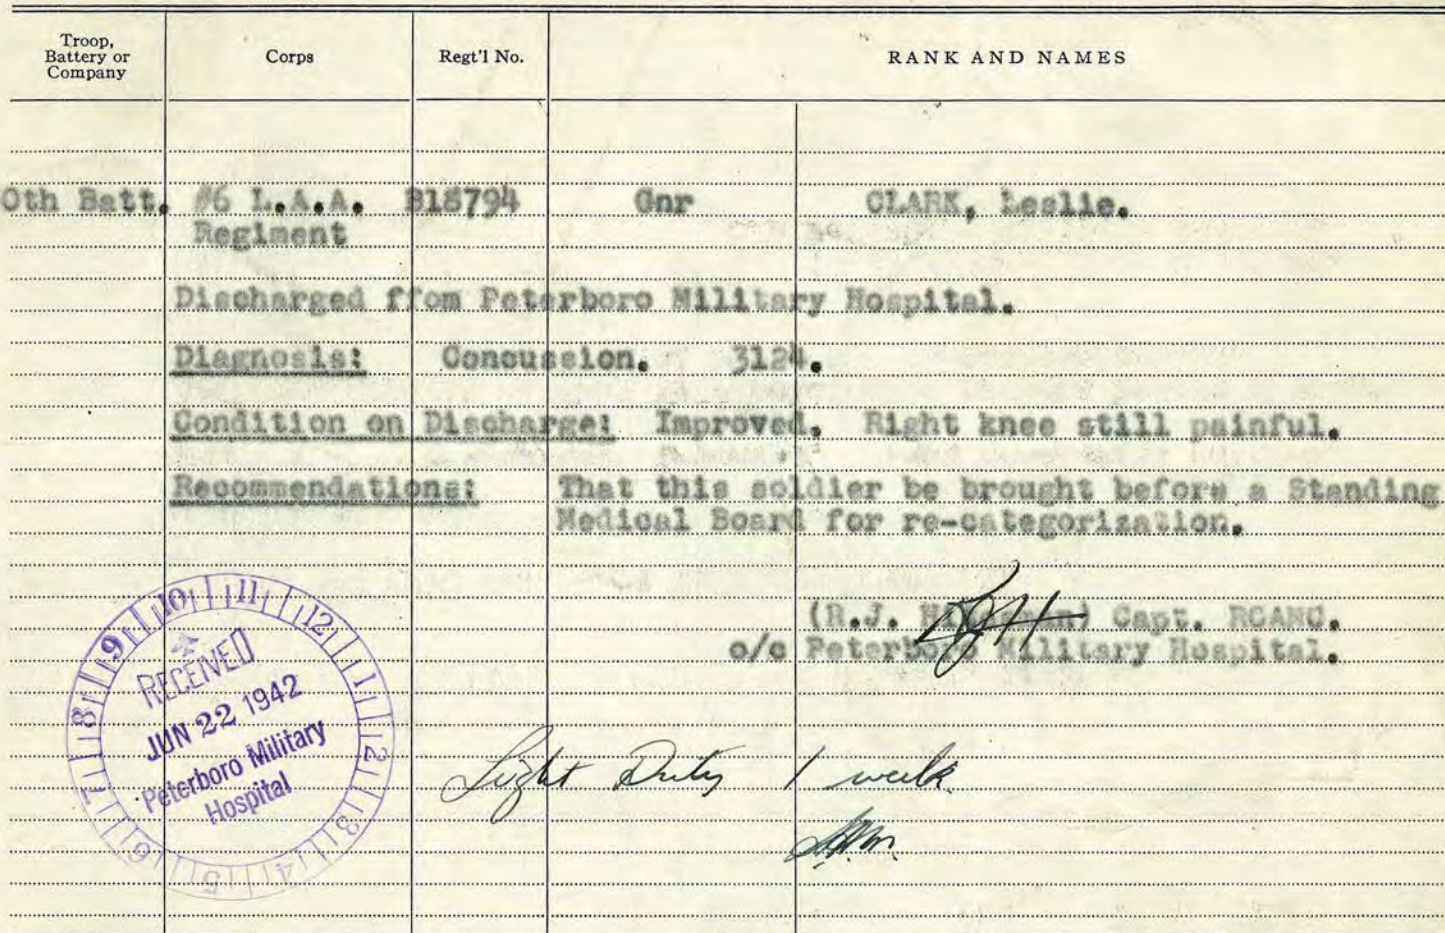 Troop,
Battery or
Company
Corps
Regt'l No.
RANK AND NAMES
0th Batt. #6 L.A.A. B18794 Gnr CLARK, Leslie.
Regiment
Discharged ffom Peterboro Military Hospital.
Diagnosis: Concussion. 3124.
Condition on Discharge: Improved. Right knee still painful.
Recommendations: That this soldier be brought before a Standing
Medical Board for re-categorization.
(R.J. Capt. RCAMC.
o/c Peterboro Military Hospital.
10 11 12 1 2 3 4 5 6 7 8 9
RECEIVED
JUN 22 1942
Peterboro Military
Hospital
Light Duty 1 week.